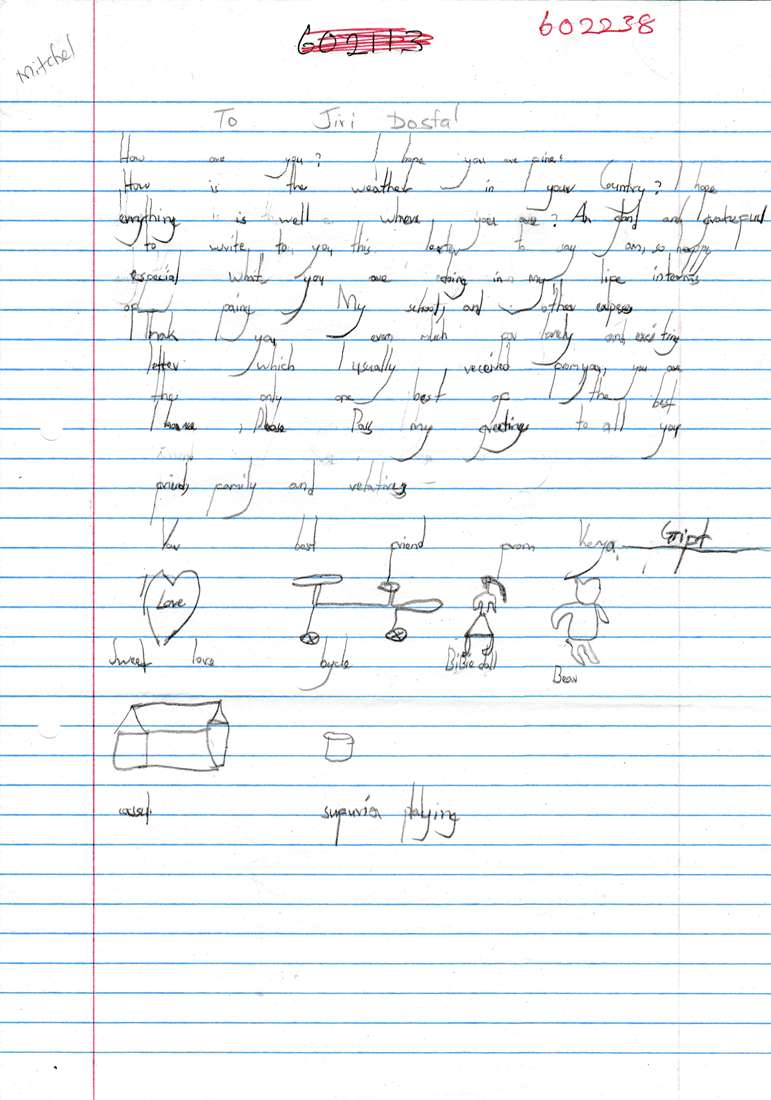 602113
602238
Mitchel
To Jiri Dostal
How are you? I hope you are pine.
How is the weather in your Country? I hope
everything is well where you are? Am glad and Greatepul
to write to you this leater to say I am, so happy
especial what you are doing in my lipe interms
op paing My school, and other expeses
Thank you even much por lovely and exciting
letter which I usually received promyou, you are
the only one best op the best
I know, Please Pass my greetings to all you
priends pamily and relatives
Your best priend prom Kenya. Gipt
Love
Sweet love bycle BiBie doll Bear
supuria playing